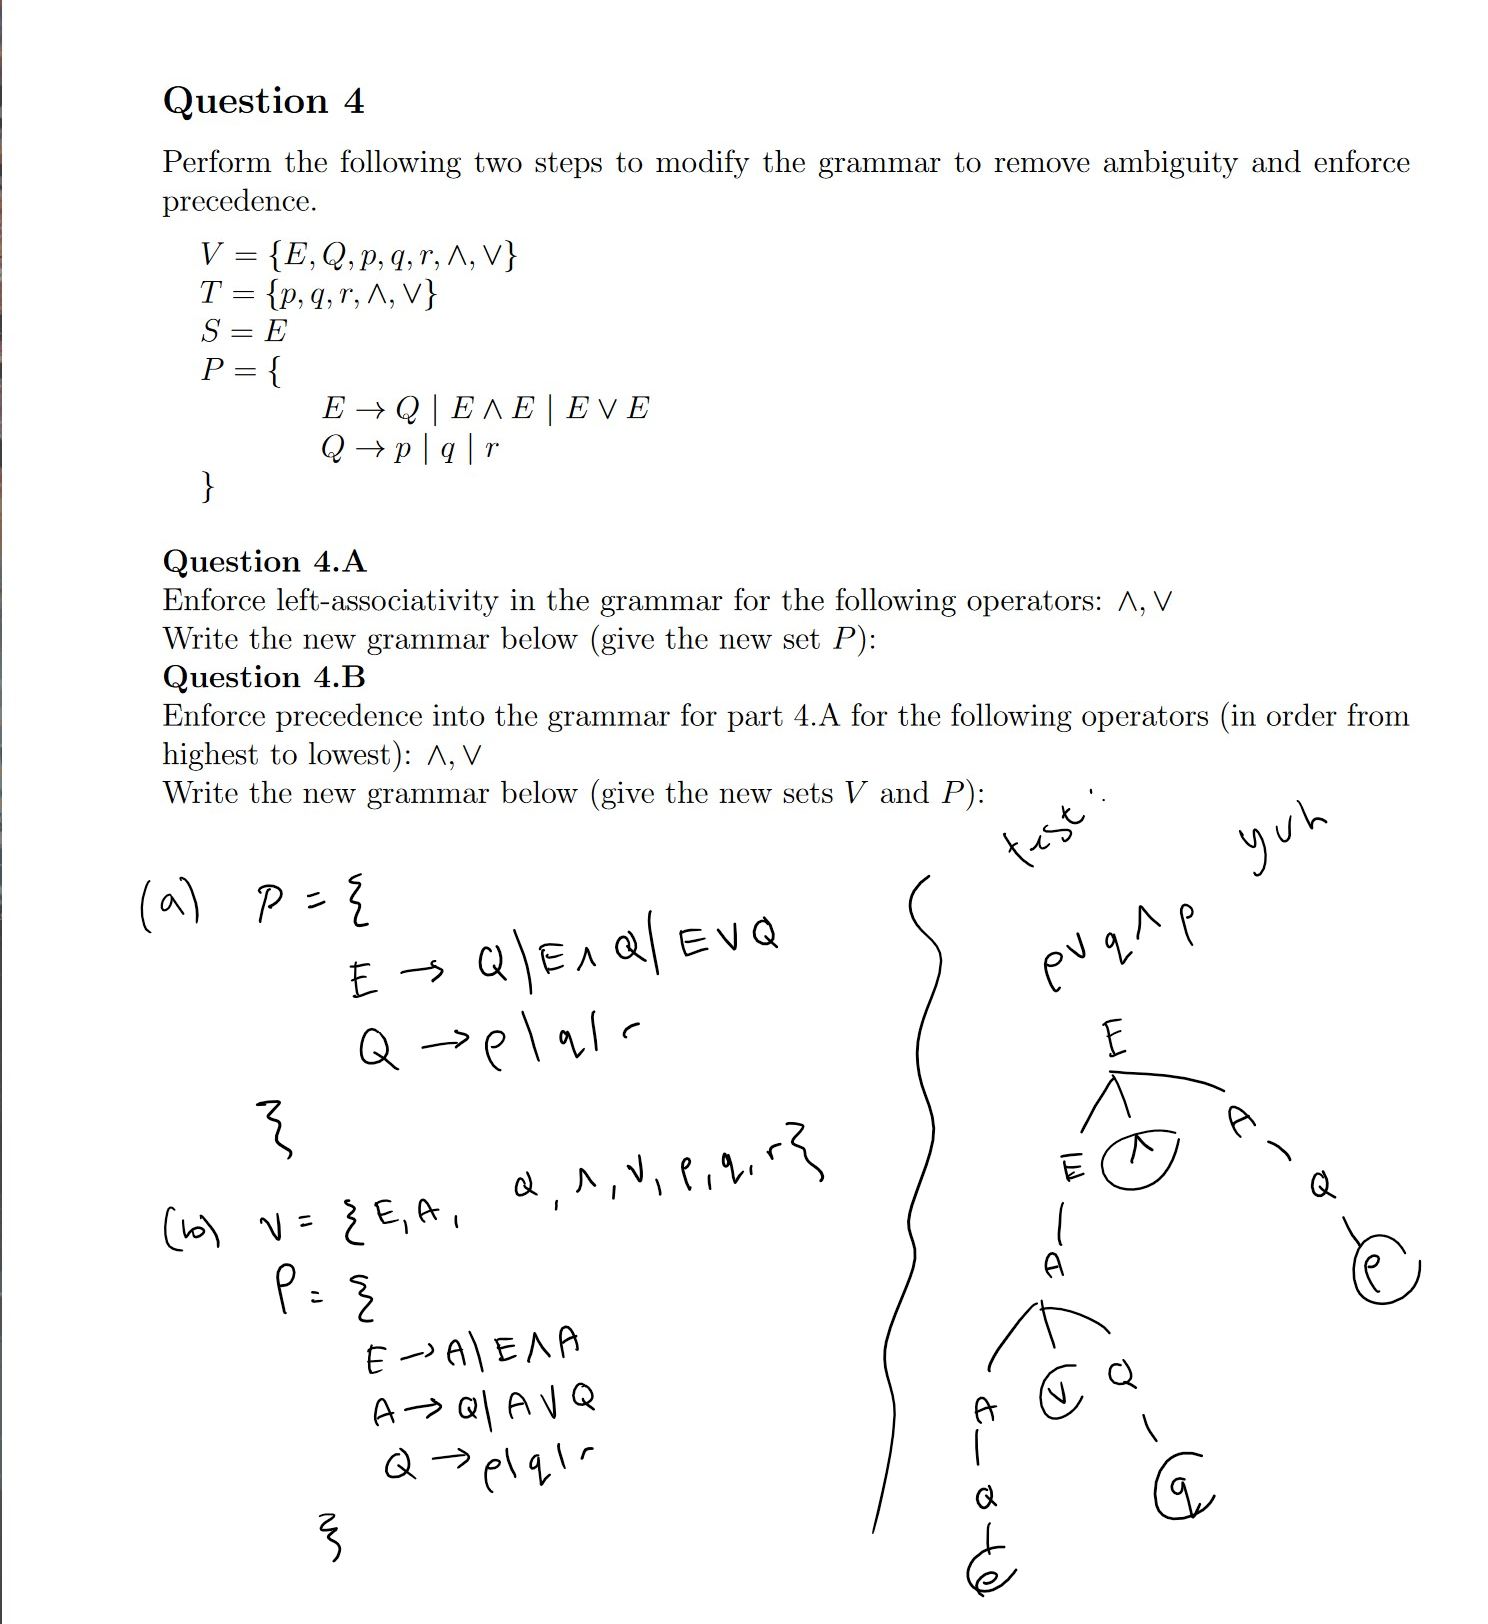 Question 4
Perform the following two steps to modify the grammar to remove ambiguity and enforce
precedence.
V = {E, Q, p, q, r, ∧, ∨}
T = {p, q, r, ∧, ∨}
S = E
P = {
E → Q | E ∧ E | E ∨ E
Q → p | q | r
}
Question 4.A
Enforce left-associativity in the grammar for the following operators: ∧, ∨
Write the new grammar below (give the new set P):
Question 4.B
Enforce precedence into the grammar for part 4.A for the following operators (in order from
highest to lowest): ∧, ∨
Write the new grammar below (give the new sets V and P):
(a) P = {
E → Q | E ∧ Q | E ∨ Q
Q → p | q | r
}
(b) V = { E, A, Q, ∧, ∨, p, q, r }
P = {
E → A | E ∧ A
A → Q | A ∨ Q
Q → p | q | r
}
test: yuh
p ∨ q ∧ p
E
E ∧ A
Q
A p
A ∨ Q
Q q
p